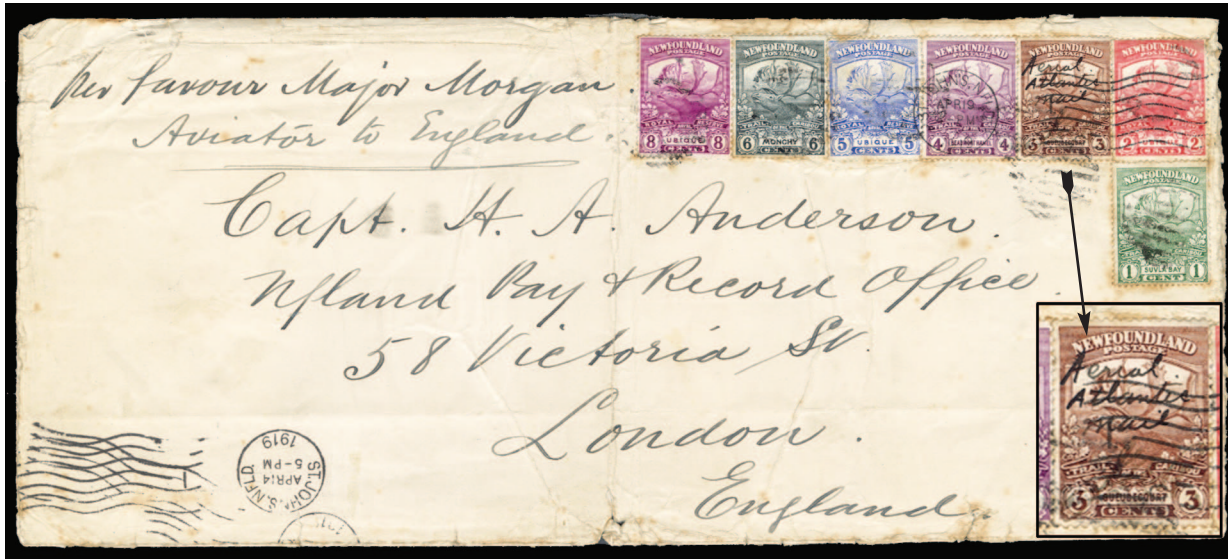 Per favour Major Morgan
Aviator to England.
Capt. H. A. Anderson.
Nfland Pay & Record Office.
58 Victoria St.
London.
England.
NEWFOUNDLAND
POSTAGE
UBIQUE
8 CENTS 8
NEWFOUNDLAND
POSTAGE
MONCHY
6 CENTS 6
NEWFOUNDLAND
POSTAGE
UBIQUE
5 CENTS 5
NEWFOUNDLAND
POSTAGE
4 CENTS 4
APR 19
PM
NEWFOUNDLAND
POSTAGE
Aerial
Atlantic
mail
GUEUDECOURT
3 CENTS 3
NEWFOUNDLAND
POSTAGE
UBIQUE
2 CENTS 2
NEWFOUNDLAND
POSTAGE
SUVLA BAY
1 CENT 1
NEWFOUNDLAND
POSTAGE
Aerial.
Atlantic
mail
TRAIL CARIBOU
GUEUDECOURT
3 CENTS 3
ST. JOHN'S. NFLD.
APR 14
5-PM
1919